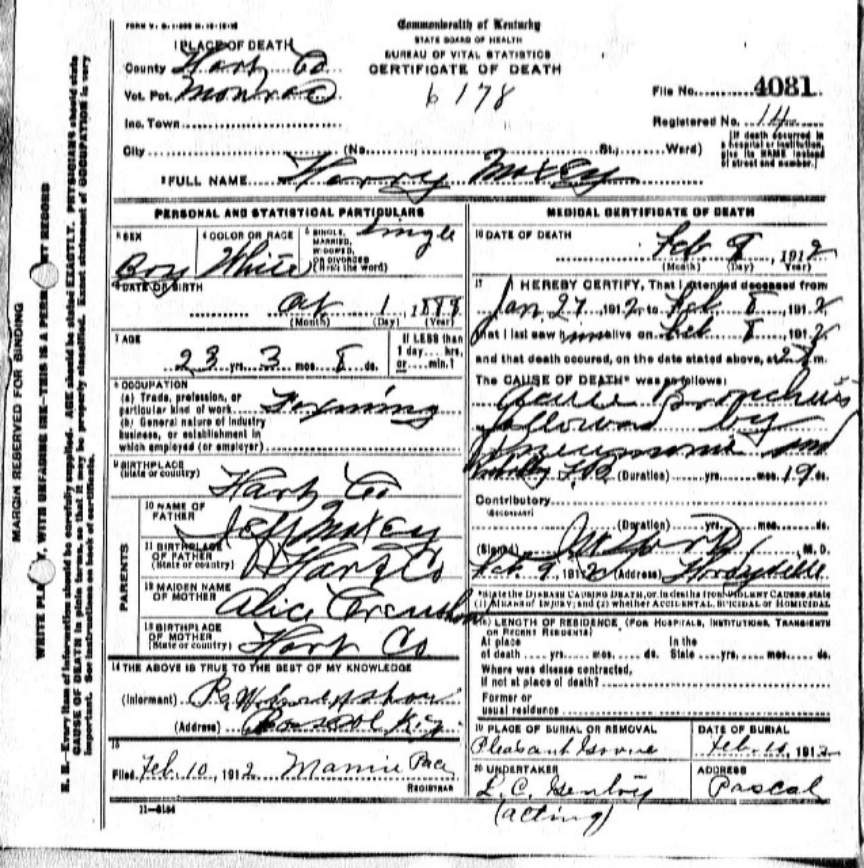 FORM V. S. 
Commonwealth of Kentucky
STATE BOARD OF HEALTH
BUREAU OF VITAL STATISTICS
CERTIFICATE OF DEATH
1 PLACE OF DEATH
County Hart Co
Vot. Pct. Monroe
Inc. Town
City (No. St.; Ward)
6178
File No. 4081
Registered No. 14
[If death occurred in a hospital or institution, give its NAME instead of street and number.]
2 FULL NAME Harry Moxey
PERSONAL AND STATISTICAL PARTICULARS
3 SEX Boy
4 COLOR OR RACE White
5 SINGLE, MARRIED, WIDOWED, OR DIVORCED (Write the word) Single
6 DATE OF BIRTH
Oct 1, 1888
(Month) (Day) (Year)
7 AGE
23 yrs. 3 mos. 8 ds.
If LESS than 1 day.... hrs. or.....min.?
8 OCCUPATION
(a) Trade, profession, or particular kind of work Farming
(b) General nature of industry business, or establishment in which employed (or employer)
9 BIRTHPLACE
(State or country) Hart Co
PARENTS
10 NAME OF FATHER Jeff Moxey
11 BIRTHPLACE OF FATHER (State or country) Hart Co
12 MAIDEN NAME OF MOTHER Alice
13 BIRTHPLACE OF MOTHER (State or country) Hart Co
14 THE ABOVE IS TRUE TO THE BEST OF MY KNOWLEDGE
(Informant)
(Address) Ky.
15
Filed Feb. 10, 1912 Mamie Pace
REGISTRAR
11-6184
MEDICAL CERTIFICATE OF DEATH
16 DATE OF DEATH
Feb 8, 1912
(Month) (Day) (Year)
17 I HEREBY CERTIFY, That I attended deceased from
Jan 27, 1912, to Feb 8, 1912
that I last saw him alive on Feb 8, 1912
and that death occured, on the date stated above, at m.
The CAUSE OF DEATH* was as follows:
Bronchitis
followed by
Pneumonia and
T.B. (Duration) yrs. mos. 19 ds.
Contributory
(SECONDARY)
(Duration) yrs. mos. ds.
(Signed) M. D.
Feb 9, 1912 (Address) Hardyville
*State the DISEASE CAUSING DEATH, or, in deaths from VIOLENT CAUSES, state (1) MEANS OF INJURY; and (2) whether ACCIDENTAL, SUICIDAL or HOMICIDAL
18 LENGTH OF RESIDENCE (FOR HOSPITALS, INSTITUTIONS, TRANSIENTS OR RECENT RESIDENTS)
At place of death yrs. mos. ds. In the State yrs. mos. ds.
Where was disease contracted, If not at place of death?
Former or usual residence
19 PLACE OF BURIAL OR REMOVAL
Pleasant Grove
DATE OF BURIAL
Feb. 10, 1912
20 UNDERTAKER
L. C.
(acting)
ADDRESS
Pascal
MARGIN RESERVED FOR BINDING
WRITE PLAINLY, WITH UNFADING INK—THIS IS A PERMANENT RECORD
N. B.—Every item of information should be carefully supplied. AGE should be stated EXACTLY. PHYSICIANS should state
CAUSE OF DEATH in plain terms, so that it may be properly classified. Exact statement of OCCUPATION is very
important. See instructions on back of certificate.